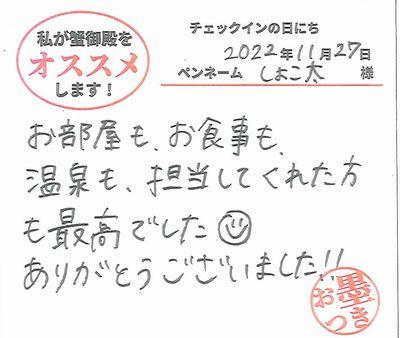 私が蟹御殿を
オススメ
します!
チェックインの日にち
2022年11月27日
ペンネーム しょこ太 様
お部屋も、お食事も、
温泉も、担当してくれた方
も最高でした☺
ありがとうございました!!
お墨つき